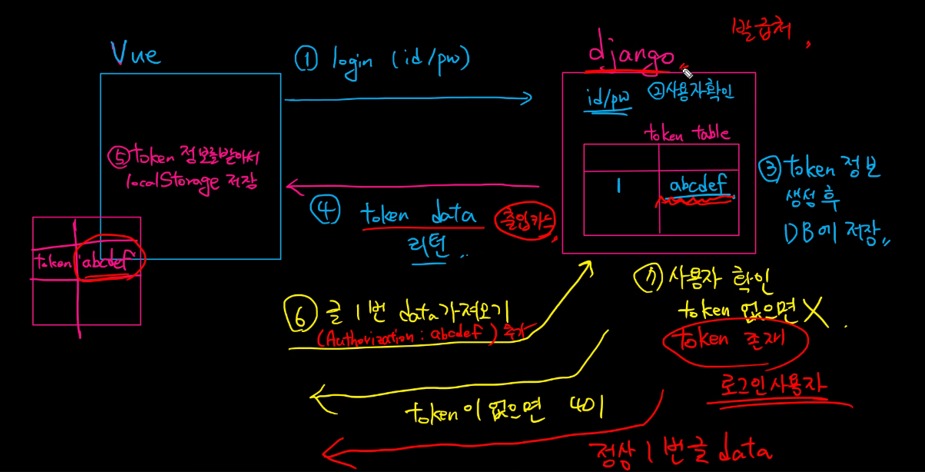 발급처,
Vue
① login (id/pw)
django
id/pw
② 사용자확인
token table
1
abcdef
③ token 정보
생성 후
DB에 저장
④ token data
리턴
출입카드
⑤ token 정보를 받아서
localStorage 저장
token
abcdef
⑥ 글 1번 data 가져오기
(Authorization : abcdef) 추가
⑦ 사용자 확인
token 없으면 X
token 존재
로그인 사용자
token이 없으면 401
정상 1번글 data